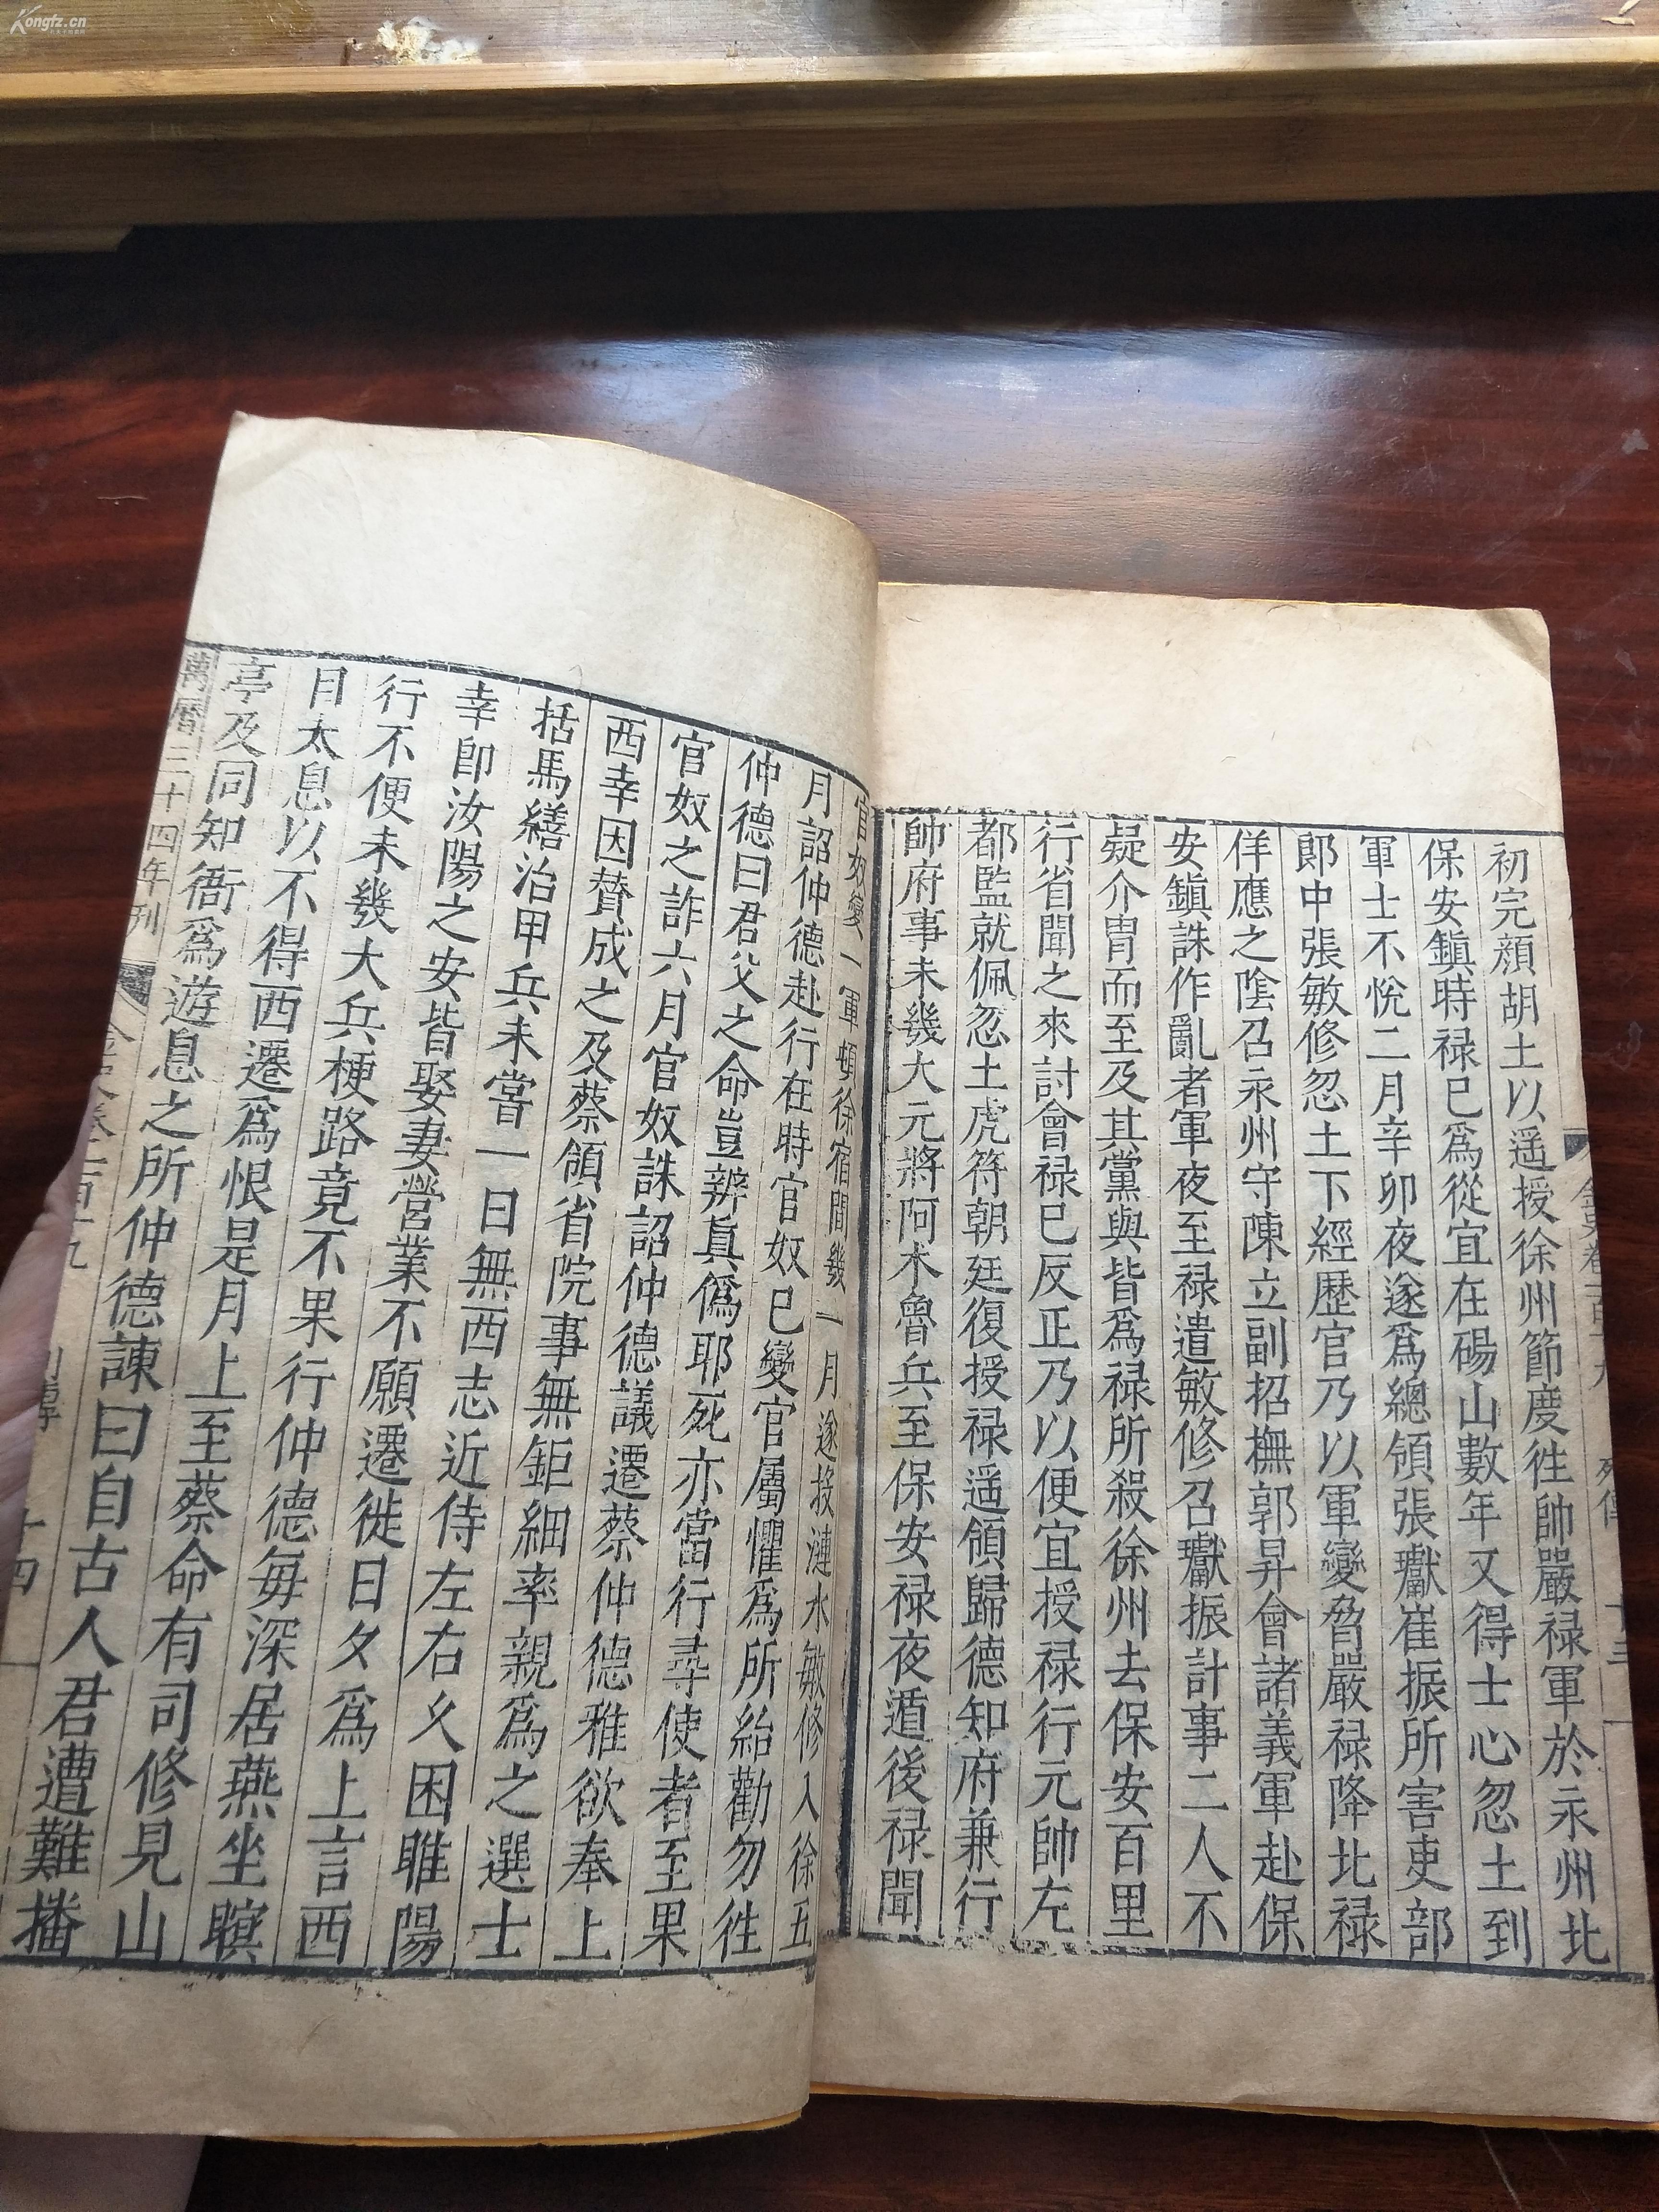 初完顏胡土以遥授徐州節度徃帥嚴禄軍於永州北
保安鎭時禄已爲從宜在碭山數年又得士心忽土到
軍士不悅二月辛卯夜遂爲總領張瓛崔振所害吏部
郎中張敏修忽土下經歷官乃以軍變脅嚴禄降北禄
佯應之隂召永州守陳立副招撫郭昇會諸義軍赴保
安鎭誅作亂者軍夜至禄遣敏修召瓛振計事二人不
疑介胄而至及其黨與皆爲禄所殺徐州去保安百里
行省聞之來討會禄已反正乃以便宜授禄行元帥左
都監就佩忽土虎符朝廷復授禄遥領歸德知府兼行
帥府事未幾大元將阿术魯兵至保安禄夜遁後禄聞
官奴變一軍頓徐宿間幾一月遂投漣水敏修入徐五
月詔仲德赴行在時官奴已變官屬懼爲所紿勸勿徃
仲德曰君父之命豈辨眞僞耶死亦當行尋使者至果
官奴之詐六月官奴誅詔仲德議遷蔡仲德雅欲奉上
西幸因賛成之及蔡領省院事無鉅細率親爲之選士
括馬繕治甲兵未嘗一日無西志近侍左右久困睢陽
幸卽汝陽之安皆娶妻營業不願遷徙日夕爲上言西
行不便未幾大兵梗路竟不果行仲德毎深居燕坐瞑
目太息以不得西遷爲恨是月上至蔡命有司修見山
亭及同知衙爲遊息之所仲德諫曰自古人君遭難播
萬曆三十四年刊
金史卷一百十九
列傳
十四
Kongfz.cn